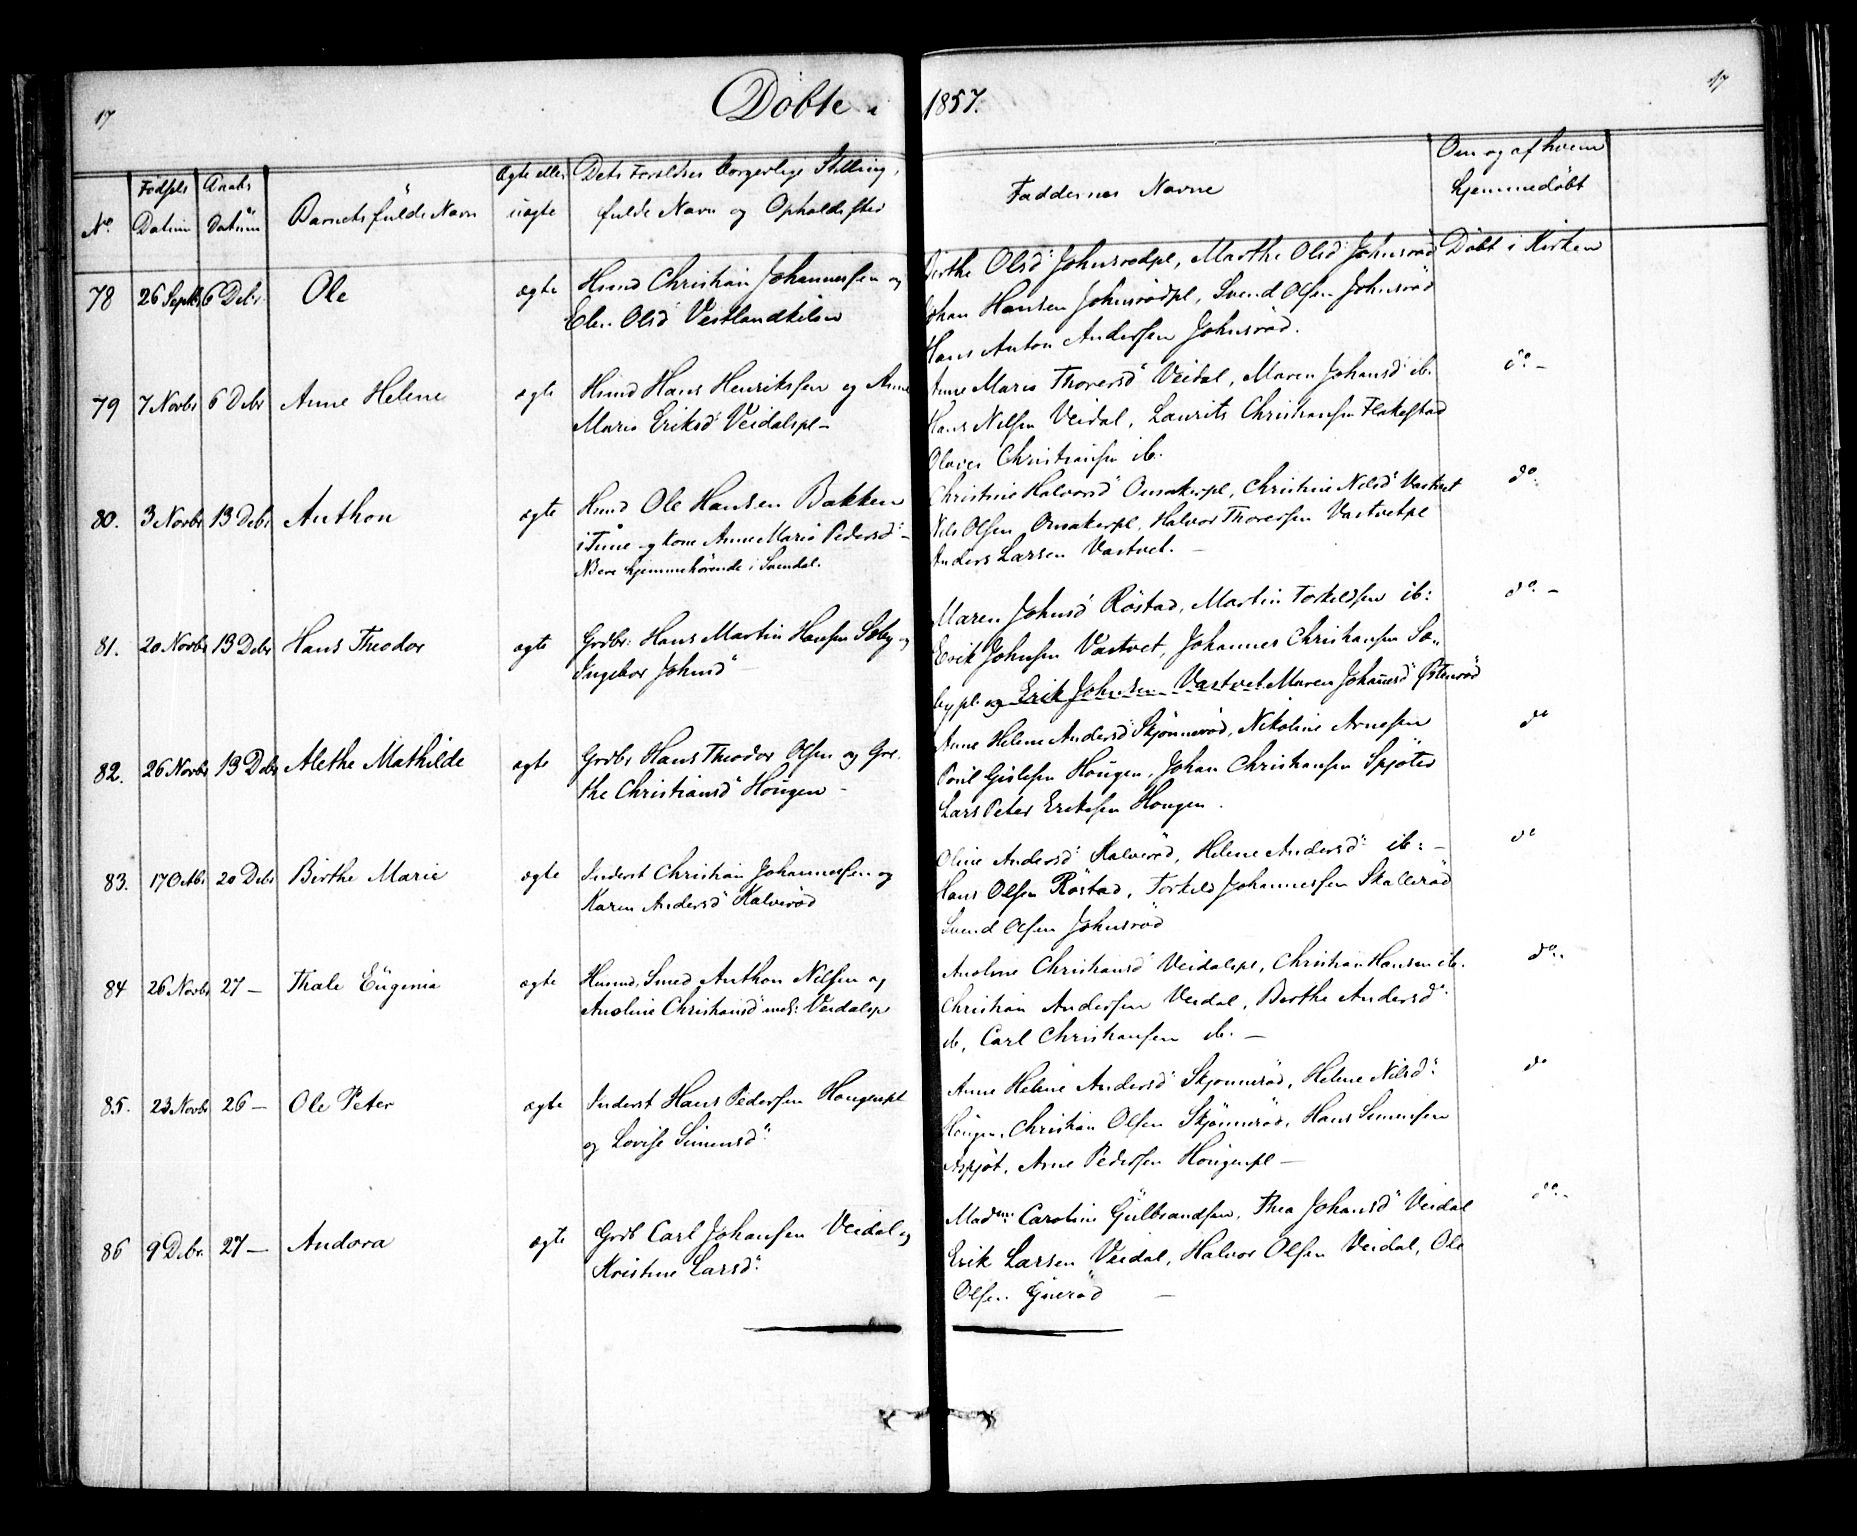 17
Døbte i 1857.
17
No
Fødsels Datum
Daabs Datum
Barnets fulde Navn
Ægte eller uægte
Dets Forældres borgerlige Stilling, fulde Navn og Opholdssted
Faddernes Navne
Om og af hvem hjemmedøbt
78 26 Septbr 6 Debr Ole ægte Husmd Christian Johannesen og
Olsd Vestlandkilen
Birthe Olsd Johnsrødpl, Marthe Olsd Johnsrød Døbt i Kirken
Johan Hansen Johnsrødpl, Svend Olsen Johnsrød
Hans Anton Andersen Johnsrød.
79 7 Novbr 6 Debr Anne Helene ægte Husmd Hans Henriksen og Anne
Maria Eriksd Veidalspl –
Anne Maria Thorersd Veidal, Maren Johansd ib. do –
Hans Nilsen Veidal, Laurits Christiansen Flakestad
Christiansen ib.
80. 3 Novbr 13 Debr Anthon ægte Husmd Ole Hansen Bakken
i Tune og Kone Anne Maria Pedersd –
hjemmehørende i
Christine Halvorsd Omakerpl, Christine Nilsd Vastvet do.
Nils Olsen Omakerpl, Halvor Thoresen Vastvetpl
Anders Larsen Vastvet. –
81. 20 Novbr 13 Debr Hans Theodor ægte Grdbr: Hans Martin Hansen Soby og
Ingebor Johnsd –
Maren Johnsd Røstad, Martin Torkildsen ib: do. –
Erik Johnsen Vastvet, Johannes Christiansen So„
bypl og Erik Johnsen Vastvet Maren Johannesd Østenrød
82. 26 Novbr 13 Debr Alethe Mathilde ægte Grdbr Hans Theodor Olsen og Gre,
the Christiansd Hougen –
Anne Helene Andersd Skjønnerød, Nikoline Arnesen do
Poul Gislesen Hougen, Johan Christiansen Spjøted
Lars Peter Eriksen Hougen.
83. 17 Octbr 20 Debr Birthe Marie ægte Inderst Christian Johannesen og
Karen Andersd Kalverød
Oline Andersd Kalverød, Helene Andersd ib: – do
Hans Olsen Røstad, Torkild Johannessen Skallerød
Svend Olsen Johnsrød
84 26 Novbr 27 – Thale Eugenia ægte Husmd, Smed Anthon Nilsen og
Anoline Christiansd Veidalspl
Anoline Christiansd Veidalspl, Christian Hansen ib. do.
Christian Andersen Veidal, Berthe Andersd
ib, Carl Christiansen ib. –
85. 23 Novbr 26 – Ole Peter ægte Inderst Hans Pedersen Hougenpl
og Lovise Simensd
Anne Helene Andersd Skjønnerød, Helene Nilsd: do
Hougen, Christian Olsen Skjønnerød, Hans Simensen
Aspjøt, Arne Pedersen Hougenpl –
86 9 Debr. 27 – Andora ægte Grdb Carl Johansen Veidal og
Kristine Larsd:
Madm: Caroline Gulbrandsen, Thea Johansd Veidal do. –
Erik Larsen Veidal, Halvor Olsen Veidal, Ole
Olsen –